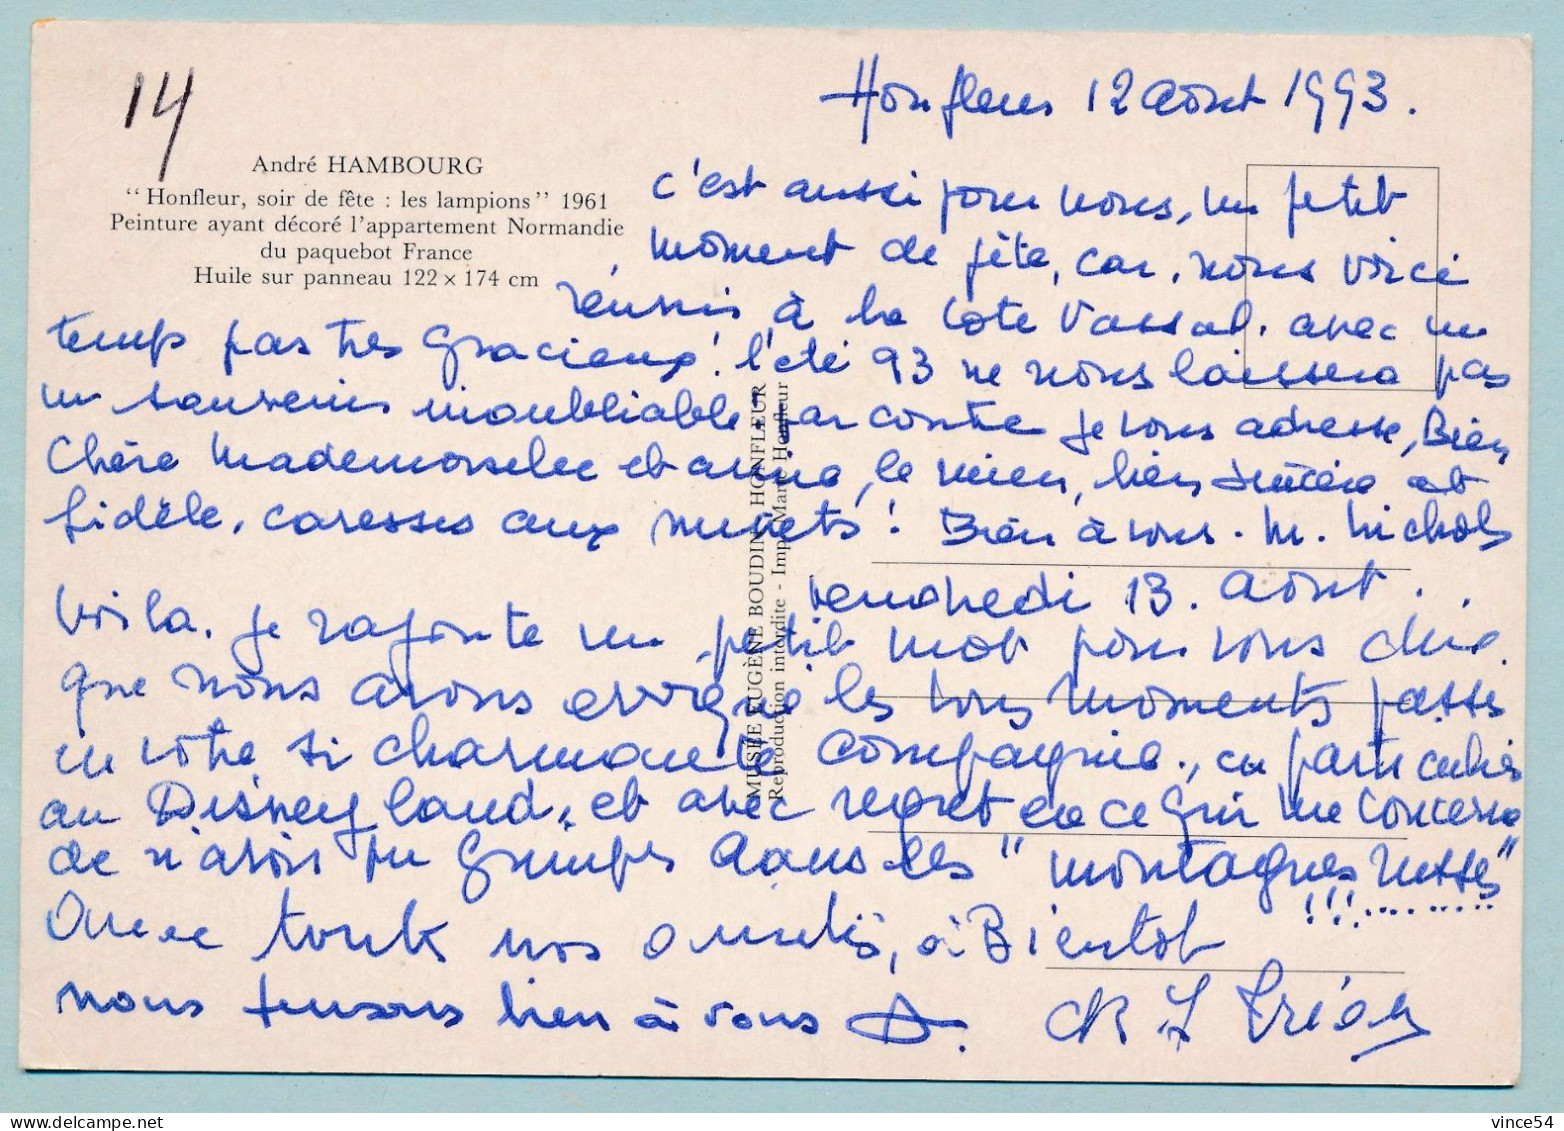 14
André HAMBOURG
"Honfleur, soir de fête : les lampions" 1961
Peinture ayant décoré l'appartement Normandie
du paquebot France
Huile sur panneau 122 × 174 cm
MUSÉE EUGÈNE BOUDIN, HONFLEUR
Reproduction interdite - Imp. Marie Honfleur
Honfleur 12 aout 1993.
c'est aussi pour nous, un petit
moment de fête, car, nous voici
réunis, à la Cote Vassal. avec un
temps pas tres gracieux! l'été 93 ne nous laissera pas
un souvenir inoubliable par contre je vous adresse, Bien
Chère Mademoiselle et amie, le mien, bien sincère et
fidèle. caresses aux minets! Bien à vous. M. Nichols
Vendredi 13. Aout..
Voila. je rajoute un petit mot pour vous dire
que nous avons evoqué les bons moments passés
en votre si charmante compagnie., en particulier
au Disney land, et avec regret en ce qui me concerne
de n'avoir pu grimper dans les "montagnes russes"
!!!.........
Avec toutes nos amitiés, à Bientot
nous pensons bien à vous